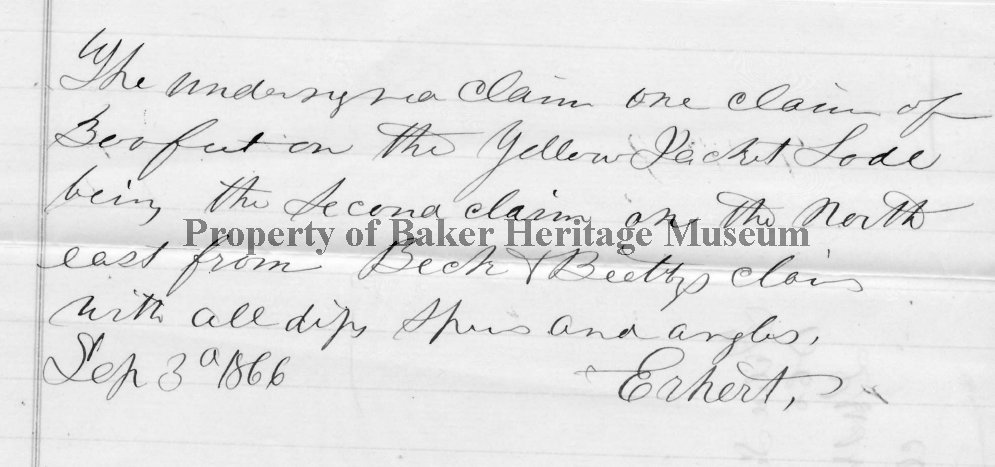 The undersigned claim one claim of
300 feet on the Yellow Jacket Lode
being the second claim on the North
Property of Baker Heritage Museum
east from Beck & claim
with all dips spurs and angles.
Sep 3d 1866 Erhert,